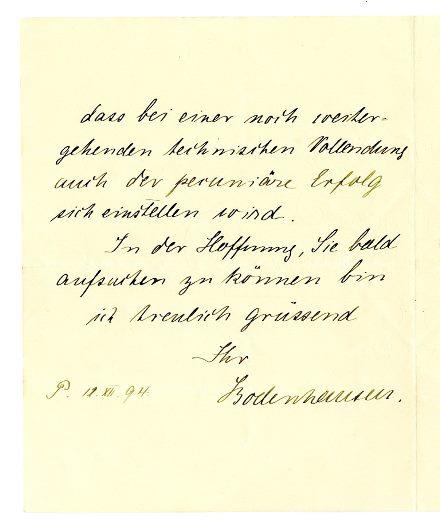 dass bei einer noch weiter-
gehenden technischen Vollendung
auch der pecuniäre Erfolg
sich einstellen wird.
In der Hoffnung, Sie bald
aufsuchen zu können bin
ich treulich grüssend
Ihr
P. 12. XII. 94. Bodenhausen.